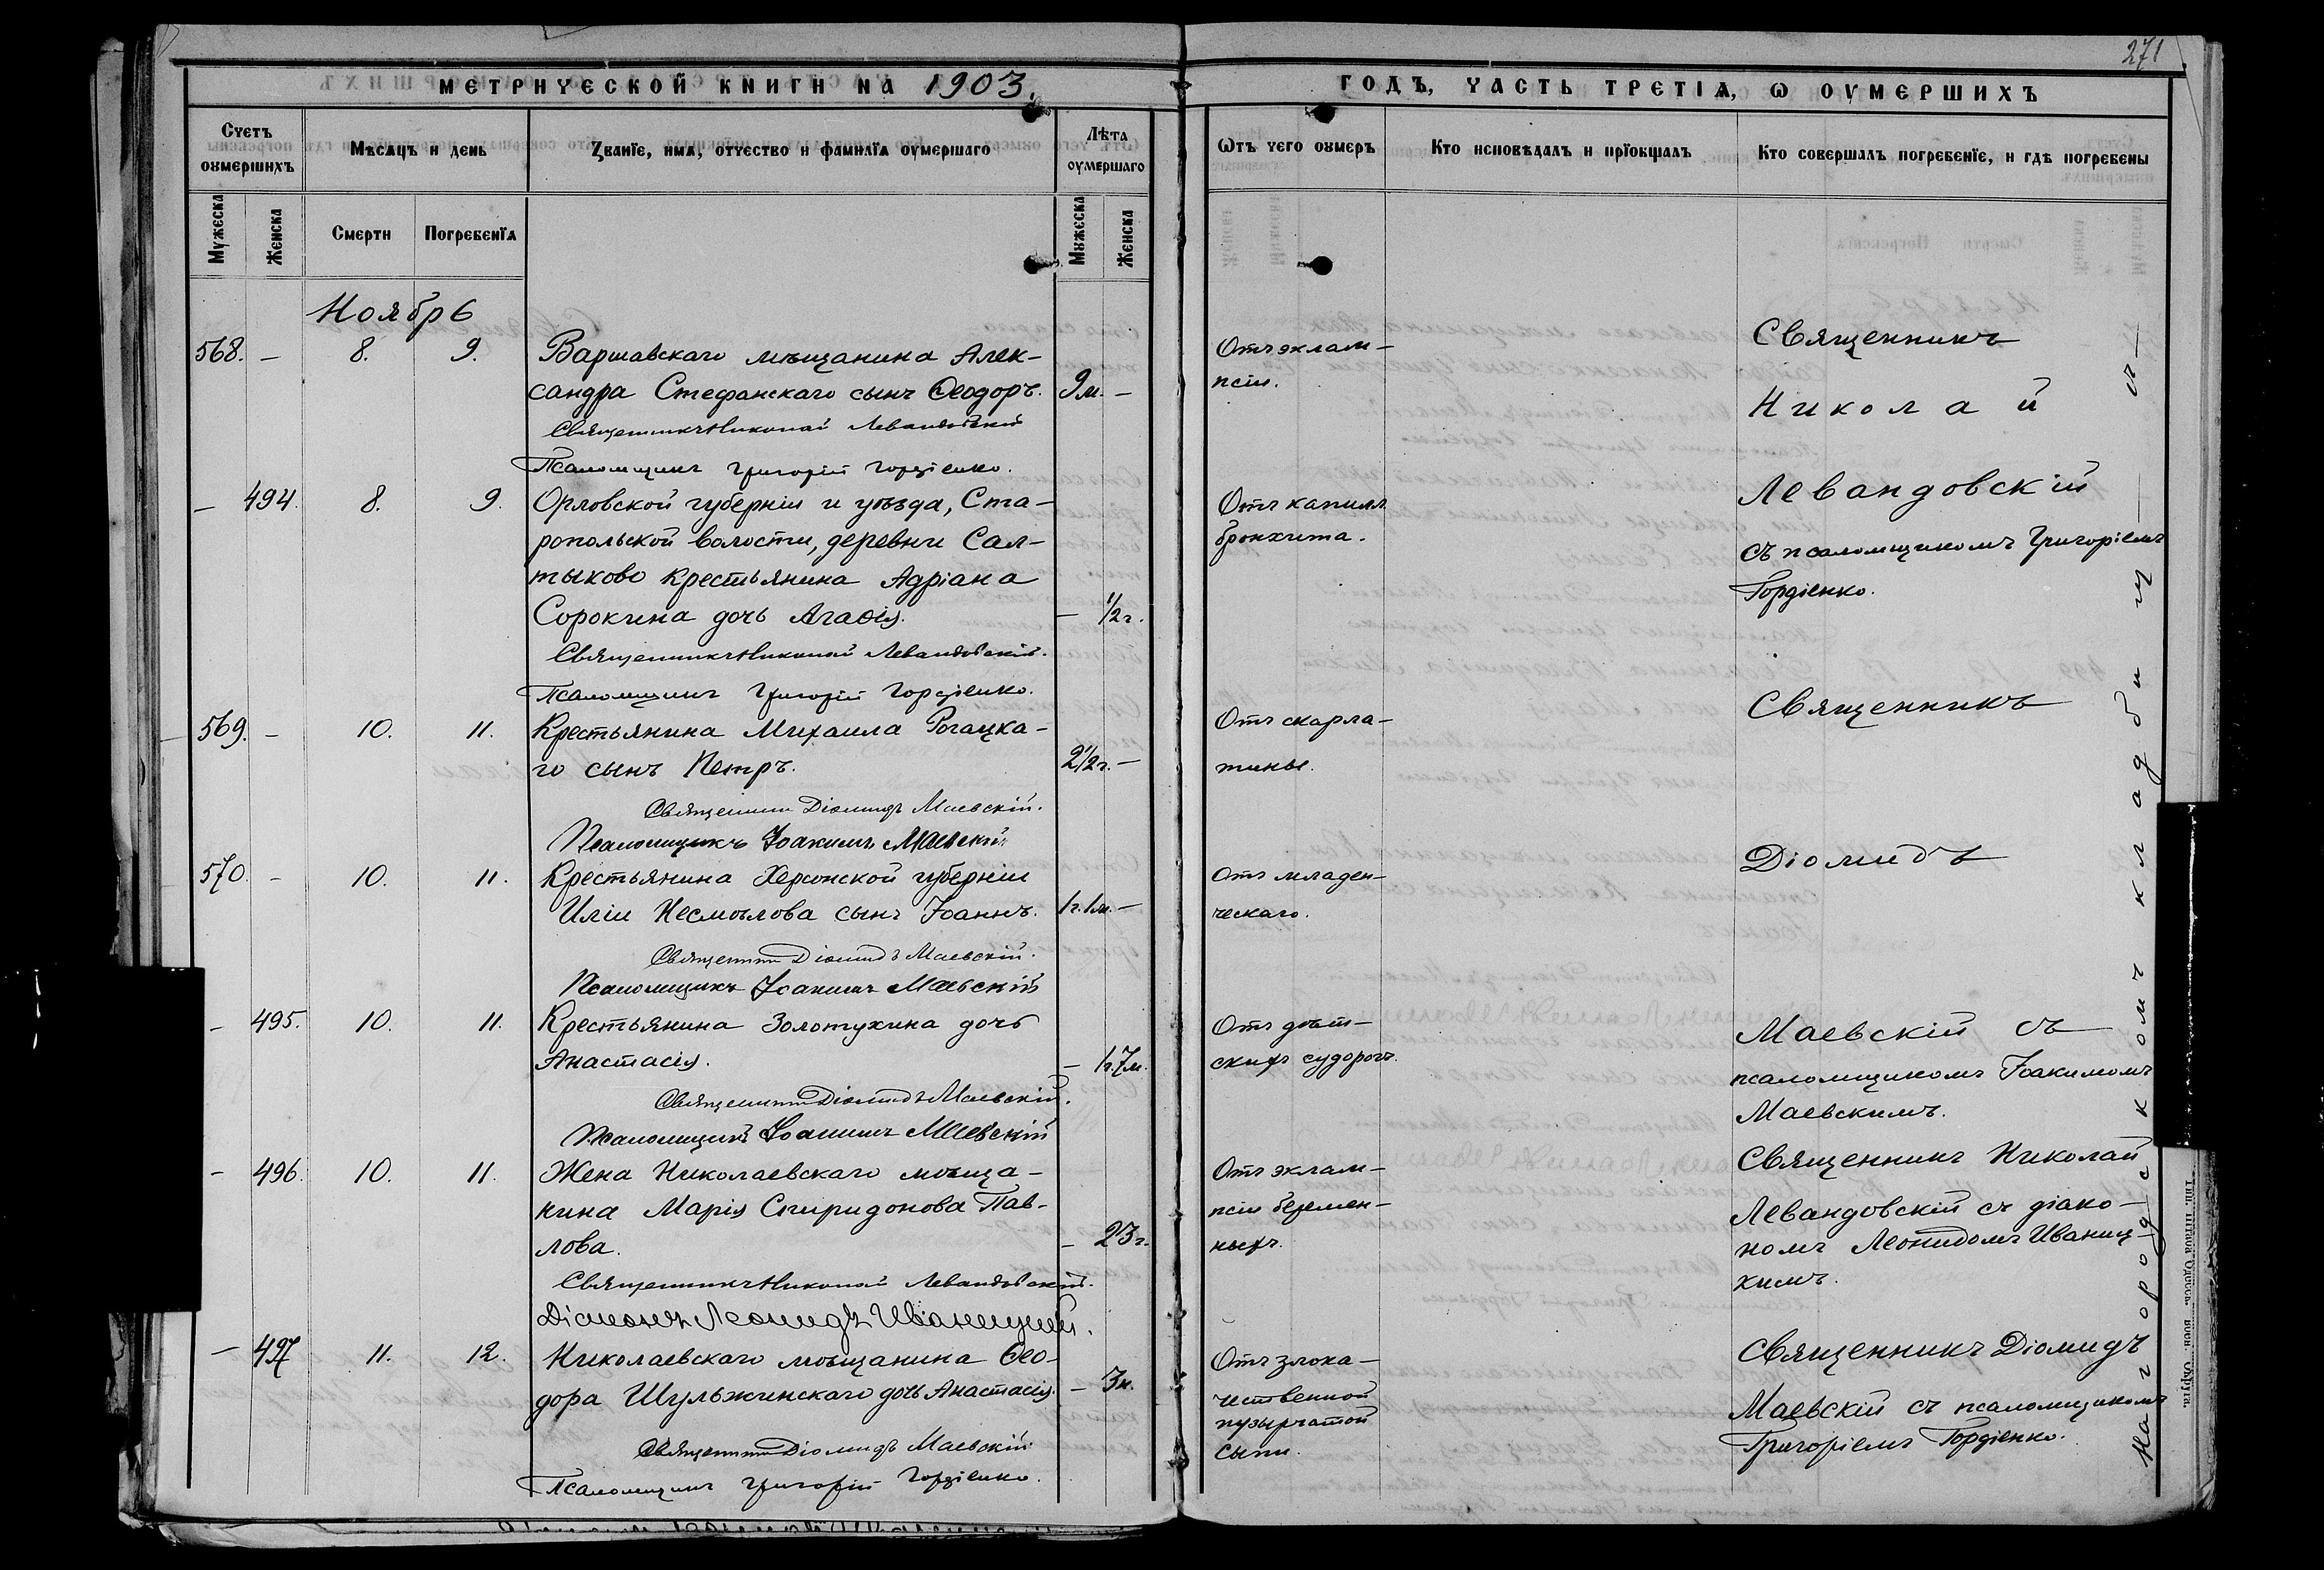 271
МЕТРИЧЕСКОЙ КНИГИ НА 1903.
ГОДЪ, ЧАСТЬ ТРЕТІѦ, Ѡ ОУМЕРШИХЪ
Счетъ оумершихъ
Мѣсяцъ и день
Званїе, имѧ, отчество и фамилїѧ оумершаго
Лѣта оумершаго
Ѿтъ чего оумеръ
Кто исповѣдалъ и прїобщалъ
Кто совершалъ погребенїе, и гдѣ погребены
Мужеска
Женска
Смерти
Погребенїѧ
Мужеска
Женска
Ноябрь
568. — 8. 9. Варшавскаго мѣщанина Алек-
сандра Стефанскаго сынъ Ѳеодоръ. 9 м. —
Священникъ Николай Левандовскій
Псаломщикъ Григорій Гордіенко.
Отъ эклам-
псіи.
— 494. 8. 9. Орловской губерніи и уѣзда, Ста-
ропольской волости, деревни Сал-
тыково крестьянина Адріана
Сорокина дочь Агаѳія. — 1/2 г.
Священникъ Николай Левандовскій.
Псаломщикъ Григорій Гордіенко.
Отъ капилл.
бронхита.
Священникъ
Николай
Левандовскій
съ псаломщикомъ Григоріемъ
Гордіенко.
569. — 10. 11. Крестьянина Михаила Рогацка-
го сынъ Петръ. 2 1/2 г. —
Священник Діомидъ Маевскій.
Псаломщикъ Іоакимъ Маевскій
Отъ скарла-
тины.
570. — 10. 11. Крестьянина Херсонской губерніи
Иліи Несмѣлова сынъ Іоаннъ. 1 г. 1 м. —
Священник Діомидъ Маевскій.
Псаломщикъ Іоакимъ Маевскій
Отъ младен-
ческаго.
— 495. 10. 11. Крестьянина Золотухина дочь
Анастасія. — 1 г. 7 м.
Священник Діомидъ Маевскій.
Псаломщикъ Іоакимъ Маевскій
Отъ дѣт-
скихъ судорогъ.
Священникъ
Діомидъ
Маевскій съ
псаломщикомъ Іоакимомъ
Маевскимъ.
— 496. 10. 11. Жена Николаевскаго мѣща-
нина Марія Спиридонова Пав-
лова. — 23 г.
Священникъ Николай Левандовскій.
Діаконъ Леонидъ Иваницкій.
Отъ эклам-
псіи беремен-
ныхъ.
Священникъ Николай
Левандовскій съ діако-
номъ Леонидомъ Иваниц-
кимъ.
— 497 11. 12. Николаевскаго мѣщанина Ѳео-
дора Шульжинскаго дочь Анастасія. — 3 н.
Священник Діомидъ Маевскій
Псаломщикъ Григорій Гордіенко.
Отъ злока-
чественной
пузырчатой
сыпи.
Священникъ Діомидъ
Маевскій съ псаломщикомъ
Григоріемъ Гордіенко.
На городскомъ кладбищѣ